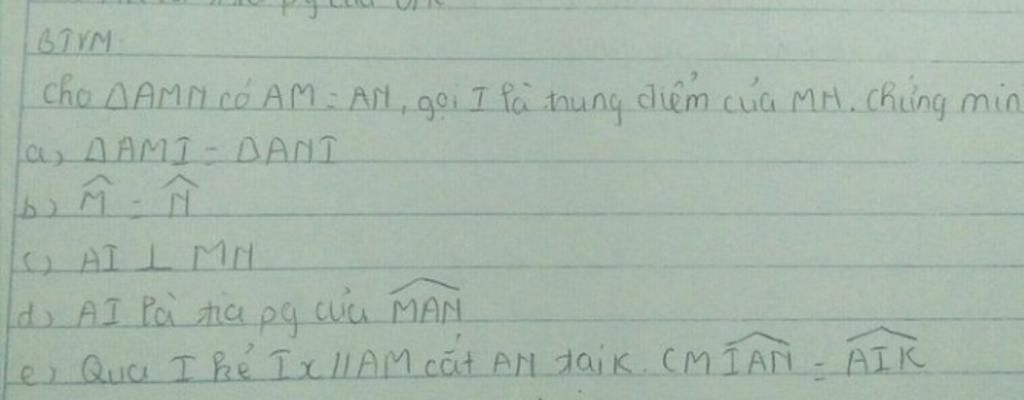 BTVN
Cho ΔAMN có AM = AN, gọi I là trung điểm của MN. Chứng min
a) ΔAMI = ΔANI
b) M̂ = N̂
c) AI ⊥ MN
d) AI là tia pg của \widehat{MAN}
e) Qua I kẻ Ix // AM cắt AN tại K. CM \widehat{IAN} = \widehat{AIK}